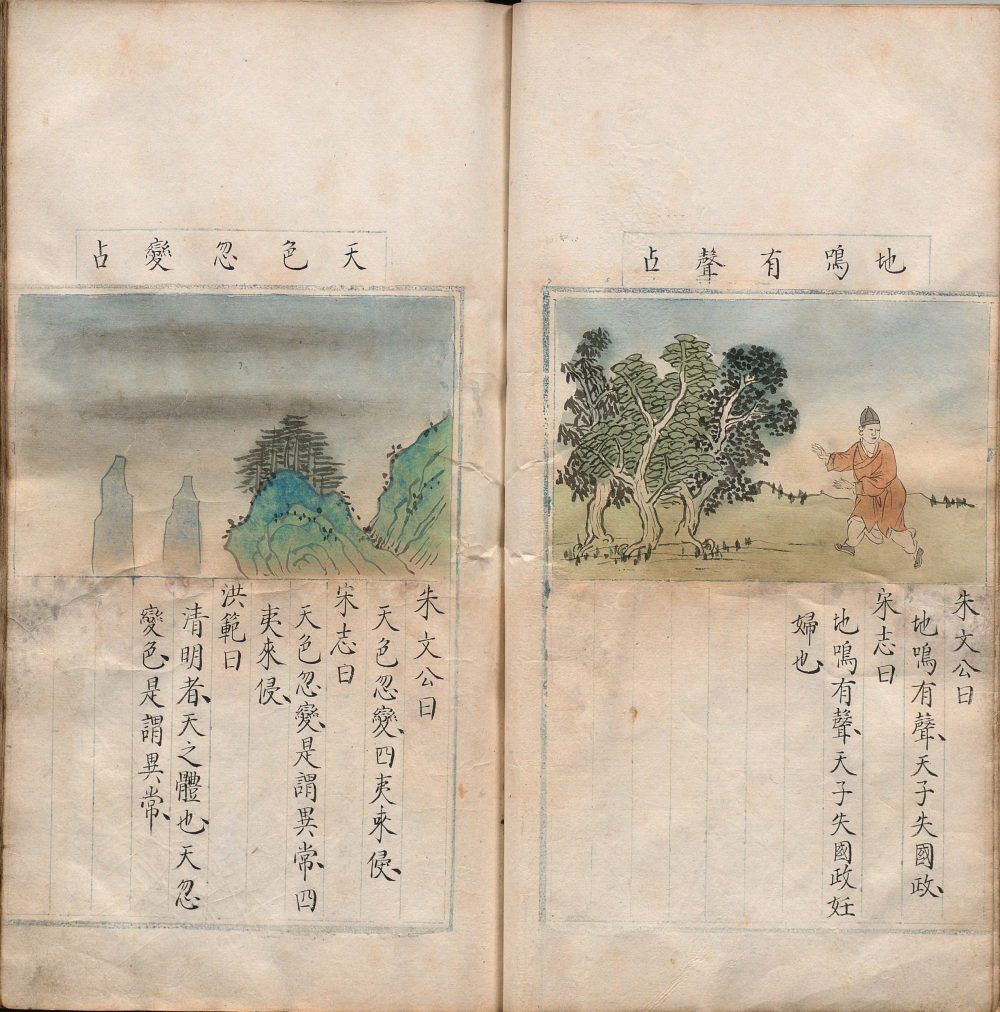 地鳴有聲占
朱文公曰
地鳴有聲、天子失國政、
宋志曰
地鳴有聲、天子失國政妊
婦也、
天色忽變占
朱文公曰
天色忽變、四夷來侵、
宋志曰
天色忽變、是謂異常、四
夷來侵、
洪範曰
清明者、天之體也、天忽
變色、是謂異常、